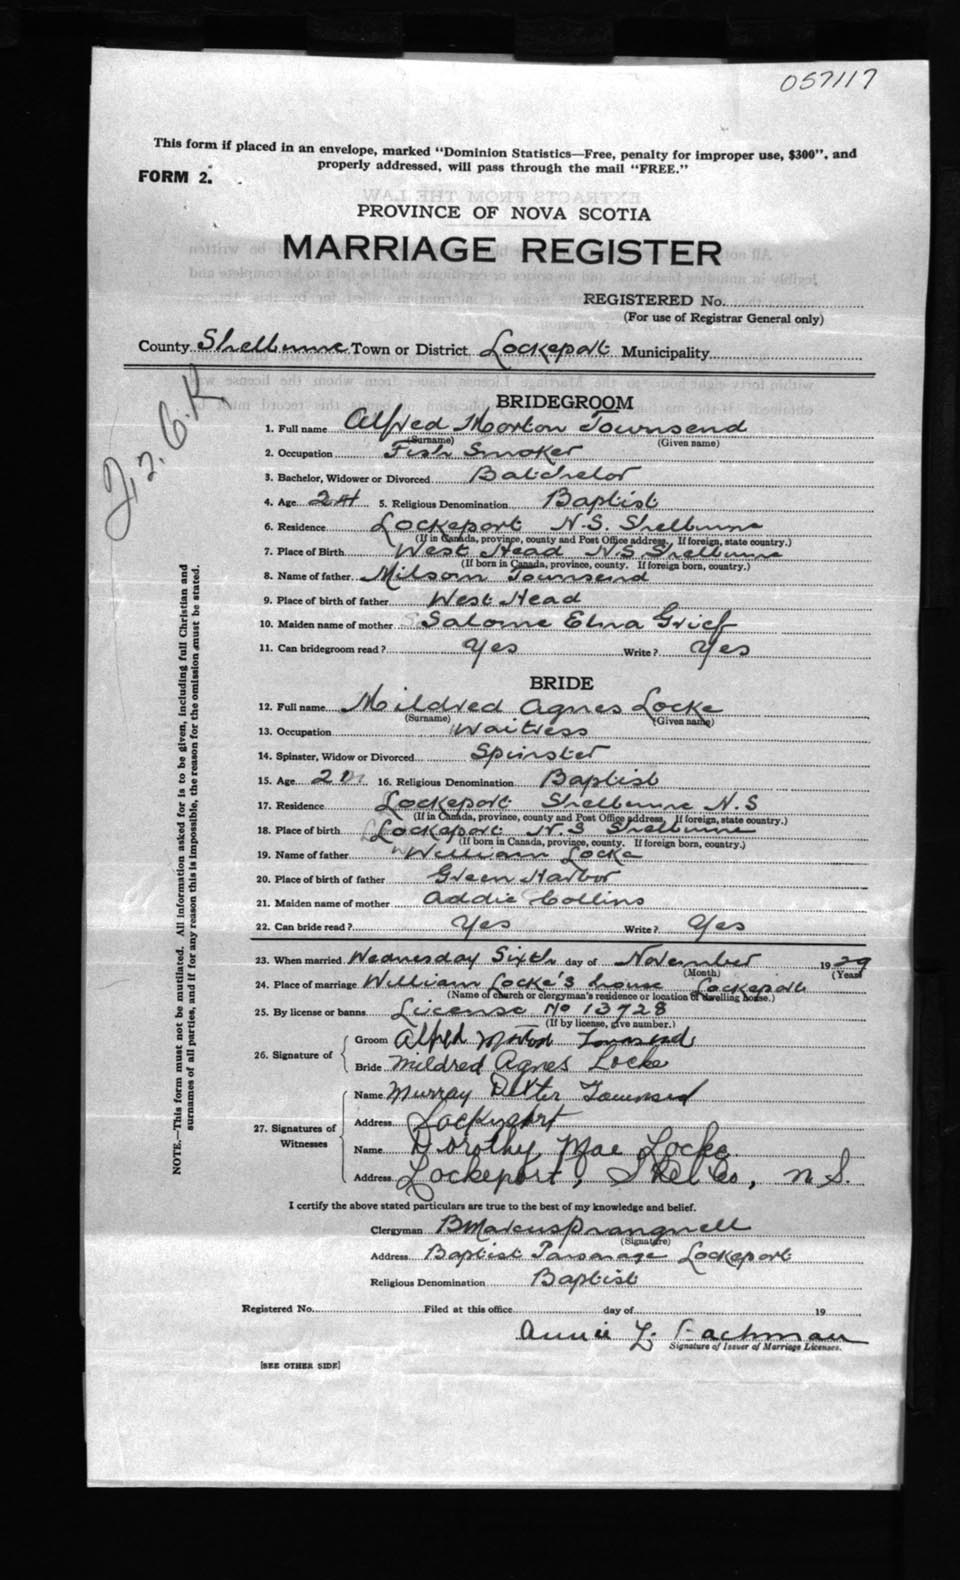 057117
This form if placed in an envelope, marked "Dominion Statistics—Free, penalty for improper use, $300", and
properly addressed, will pass through the mail "FREE."
FORM 2.
PROVINCE OF NOVA SCOTIA
MARRIAGE REGISTER
REGISTERED No.
(For use of Registrar General only)
County Shelburne Town or District Lockeport Municipality
BRIDEGROOM
1. Full name Alfred Morton Townsend
(Surname) (Given name)
2. Occupation Fish Smoker
3. Bachelor, Widower or Divorced Batchelor
4. Age 24 5. Religious Denomination Baptist
6. Residence Lockeport N.S. Shelburne
(If in Canada, province, county and Post Office address. If foreign, state country.)
7. Place of Birth West Head N.S. Shelburne
(If born in Canada, province, county. If foreign born, country.)
8. Name of father Milsom Townsend
9. Place of birth of father West Head
10. Maiden name of mother Salome Grief
11. Can bridegroom read? Yes Write? Yes
BRIDE
12. Full name Mildred Agnes Locke
(Surname) (Given name)
13. Occupation Waitress
14. Spinster, Widow or Divorced Spinster
15. Age 16. Religious Denomination Baptist
17. Residence Lockeport Shelburne N.S
(If in Canada, province, county and Post Office address, If foreign, state country.)
18. Place of birth Lockeport N.S Shelburne
(If born in Canada, province, county. If foreign born, country.)
19. Name of father William Locke
20. Place of birth of father Green Harbor
21. Maiden name of mother Addie Collins
22. Can bride read? Yes Write? Yes
23. When married Wednesday Sixth day of November 1929
(Month) (Year)
24. Place of marriage William Locke's house Lockeport
(Name of church or clergyman's residence or location of dwelling house.)
25. By license or banns License No 13728
(If by license, give number.)
26. Signature of
Groom Alfred Morton Townsend
Bride Mildred Agnes Locke
27. Signatures of Witnesses
Name Murray Dexter Townsend
Address Lockeport
Name Dorothy Mae Locke
Address Lockeport, Shel Co, N.S.
I certify the above stated particulars are true to the best of my knowledge and belief.
Clergyman B Marcus Prangnell
(Signature)
Address Baptist Parsonage Lockeport
Religious Denomination Baptist
Registered No. Filed at this office day of 19
Annie L.
Signature of Issuer of Marriage Licenses.
[SEE OTHER SIDE]
NOTE.—This form must not be mutilated. All information asked for is to be given, including full Christian and
surnames of all parties, and if for any reason this is impossible, the reason for the omission must be stated.